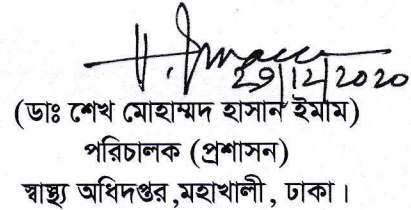 29/12/2020
(ডাঃ শেখ মোহাম্মদ হাসান ইমাম)
পরিচালক (প্রশাসন)
স্বাস্থ্য অধিদপ্তর,মহাখালী, ঢাকা।